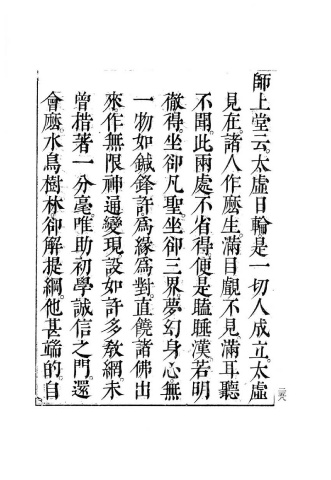 師上堂云。太虛日輪是一切人成立。太虛
見在。諸人作麼生滿目覰不見。滿耳聽
不聞。此兩處不省得。便是瞌睡漢。若明
徹得。坐卻凡聖。坐卻三界夢幻身心。無
一物如鍼鋒許爲緣爲對。直饒諸佛出
來。作無限神通變現。設如許多敎網。未
曾措著一分毫。唯助初學誠信之門。還
會麼。水鳥樹林卻解提綱。他甚端的。自